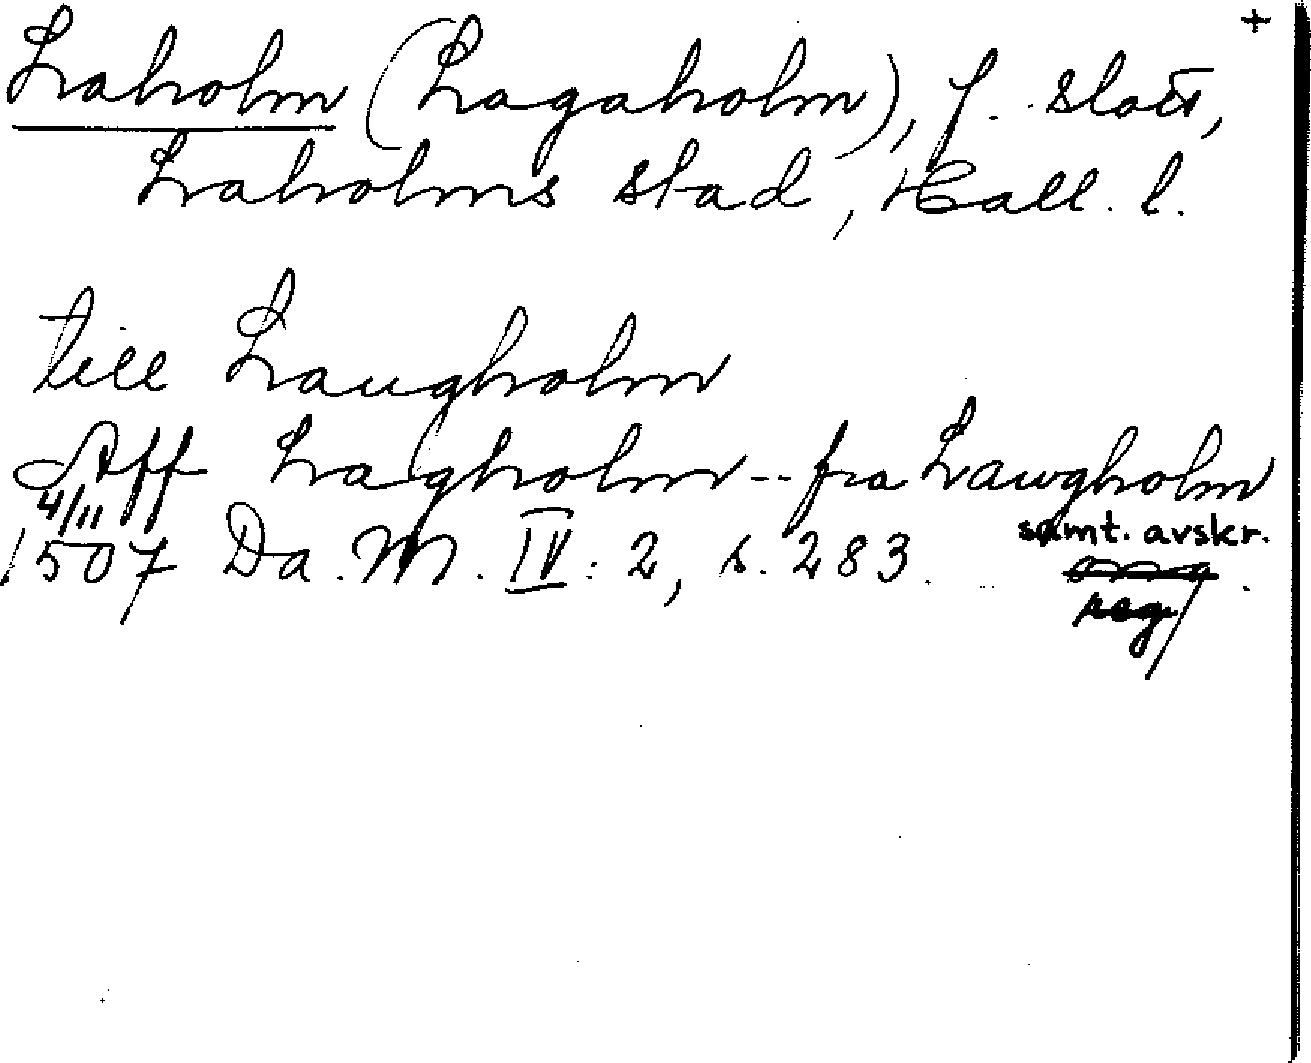 +
Laholm (Lagaholm), f. slott,
Laholms stad, Hall. l.
till Laugholm
Aff Lagholm -- fra Lawgholm
4/11
1507 Da. M. IV: 2, s. 283. samt. avskr.
reg